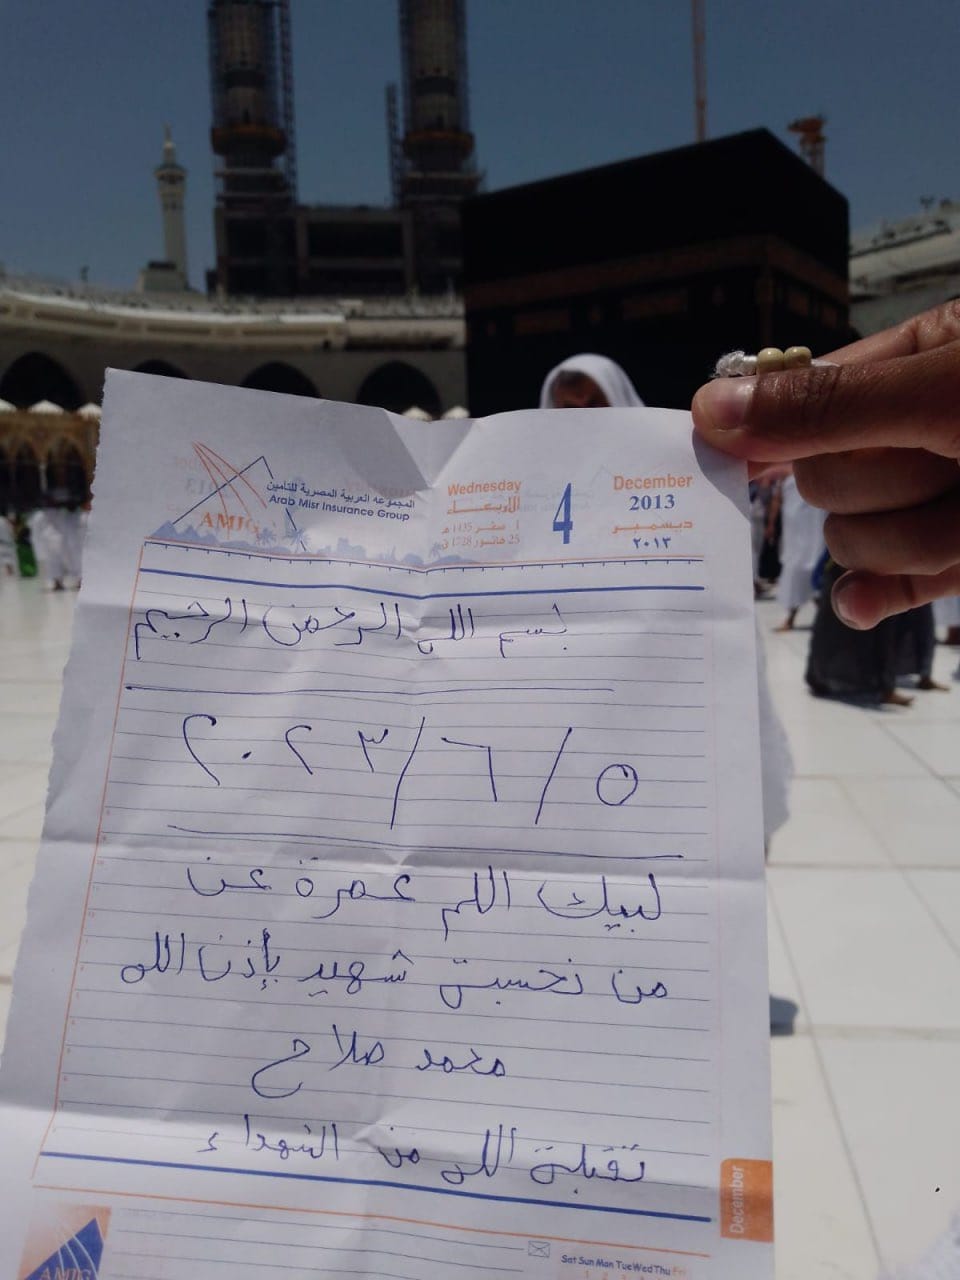 المجموعه العربية المصرية للتأمين
Arab Misr Insurance Group
AMIG
Wednesday
الأربعاء
1 صفر 1435 هـ
25 هاتور 1728 ق
4
December
2013
ديسمبر
٢٠١٣
بسم الله الرحمن الرحيم
٢٠٢٣/٦/٥
لبيك اللهم عمرة عن
من نحسبة شهيد بإذن الله
محمد صلاح
تقبلة الله من الشهداء
December
AMIG
Sat Sun Mon Tue Wed Thu Fri